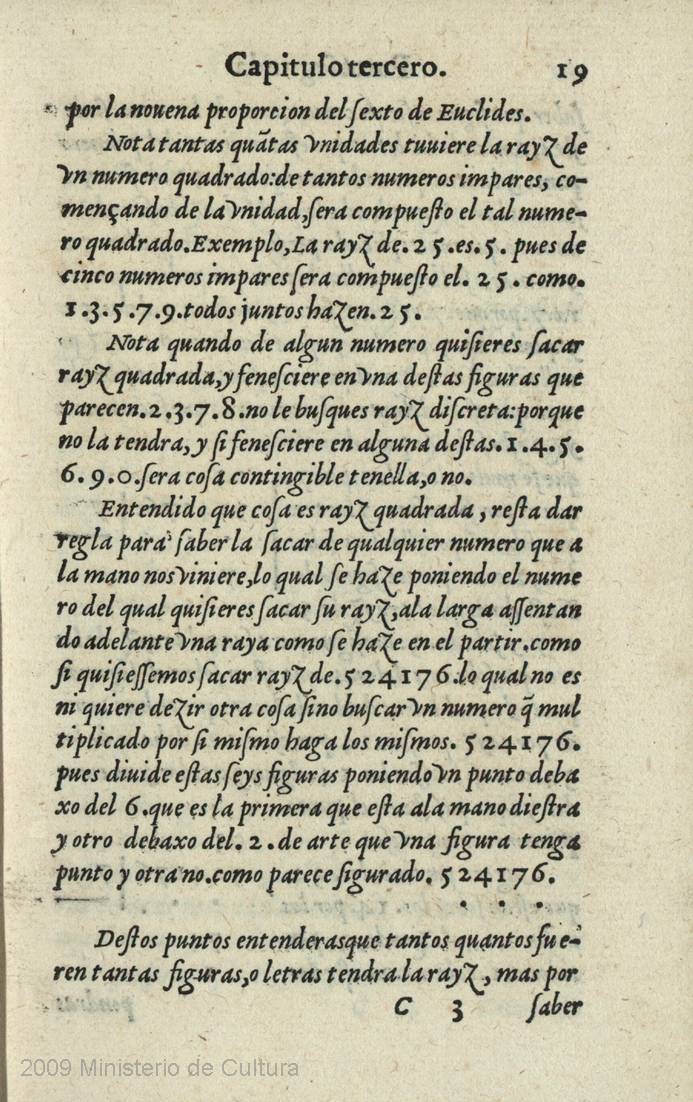 Capitulo tercero. 19
por la nouena proporcion del ſexto de Euclides.
Nota tantas quãtas vnidades tuuiere la rayz de
vn numero quadrado:de tantos numeros impares, co-
mençando de la vnidad,ſera compueſto el tal nume-
ro quadrado.Exemplo,La rayz de.25.es.5. pues de
cinco numeros impares ſera compueſto el. 25. como.
1.3.5.7.9.todos juntos hazen.25.
Nota quando de algun numero quiſieres ſacar
rayz quadrada,y feneſciere en vna deſtas figuras que
parecen.2.3.7.8.no le buſques rayz diſcreta:porque
no la tendra, y ſi feneſciere en alguna deſtas.1.4.5.
6.9.0.ſera coſa contingible tenella,o no.
Entendido que coſa es rayz quadrada, reſta dar
regla para ſaber la ſacar de qualquier numero que a
la mano nos viniere,lo qual ſe haze poniendo el nume
ro del qual quiſieres ſacar ſu rayz,ala larga aſſentan
do adelante vna raya como ſe haze en el partir.como
ſi quiſieſſemos ſacar rayz de.524176.lo qual no es
ni quiere dezir otra coſa ſino buſcar vn numero q̃ mul
tiplicado por ſi miſmo haga los miſmos. 524176.
pues diuide eſtas ſeys figuras poniendo vn punto deba
xo del 6.que es la primera que eſta ala mano dieſtra
y otro debaxo del. 2. de arte que vna figura tenga
punto y otra no.como parece figurado. 524176.
. . .
Deſtos puntos entenderas que tantos quantos fue-
ren tantas figuras,o letras tendra la rayz, mas por
C 3 ſaber
2009 Ministerio de Cultura